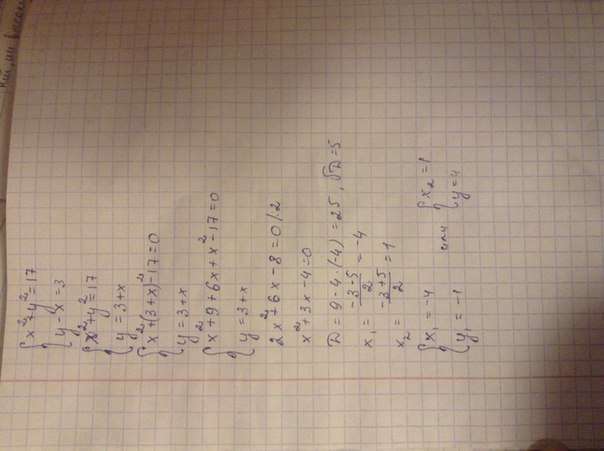 x²+y²=17
y-x=3
x²+y²=17
y=3+x
x²+(3+x)²-17=0
y=3+x
x²+9+6x+x²-17=0
y=3+x
2x²+6x-8=0/:2
x²+3x-4=0
D=9-4·(-4)=25, √D=5
x₁=(-3-5)/2=-4
x₂=(-3+5)/2=1
x₁=-4 или x₂=1
y₁=-1 y=4